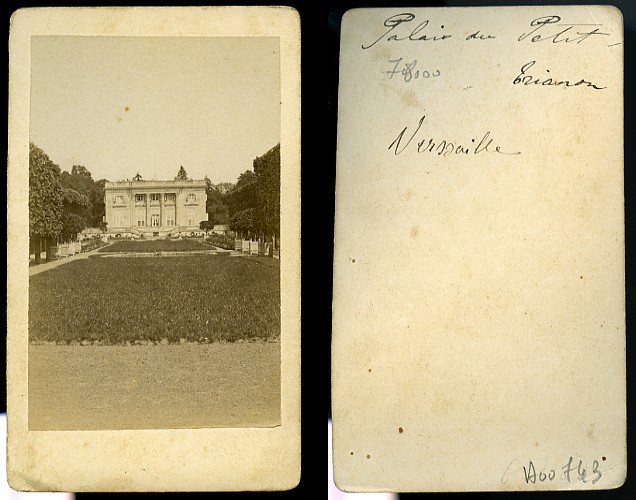 Palais du Petit-
78000
Trianon
Versaille
A00743